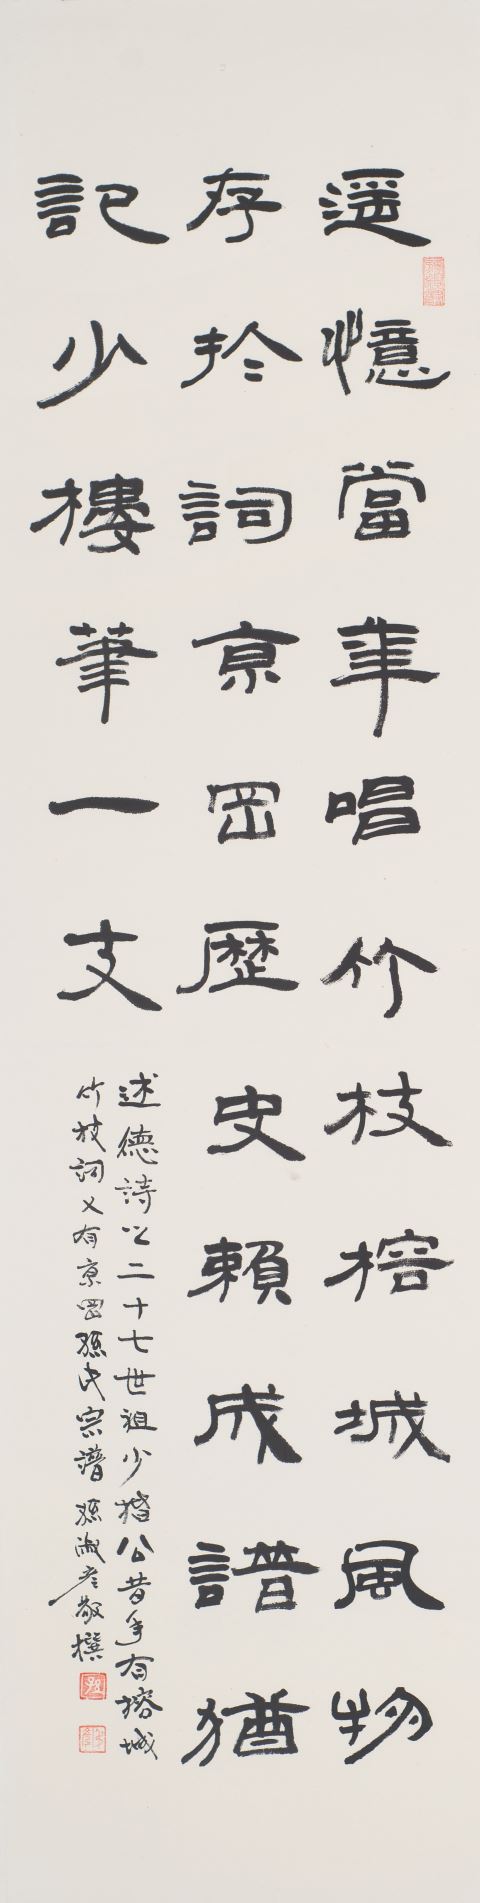 遥憶當年唱竹枝榕城風物
存於詞京岡歷史賴成譜猶
記少樓筆一支
述德詩以二十七世祖少楼公昔年有榕城
竹枝詞又有京岡孫氏宗譜 孫淑彦敬撰